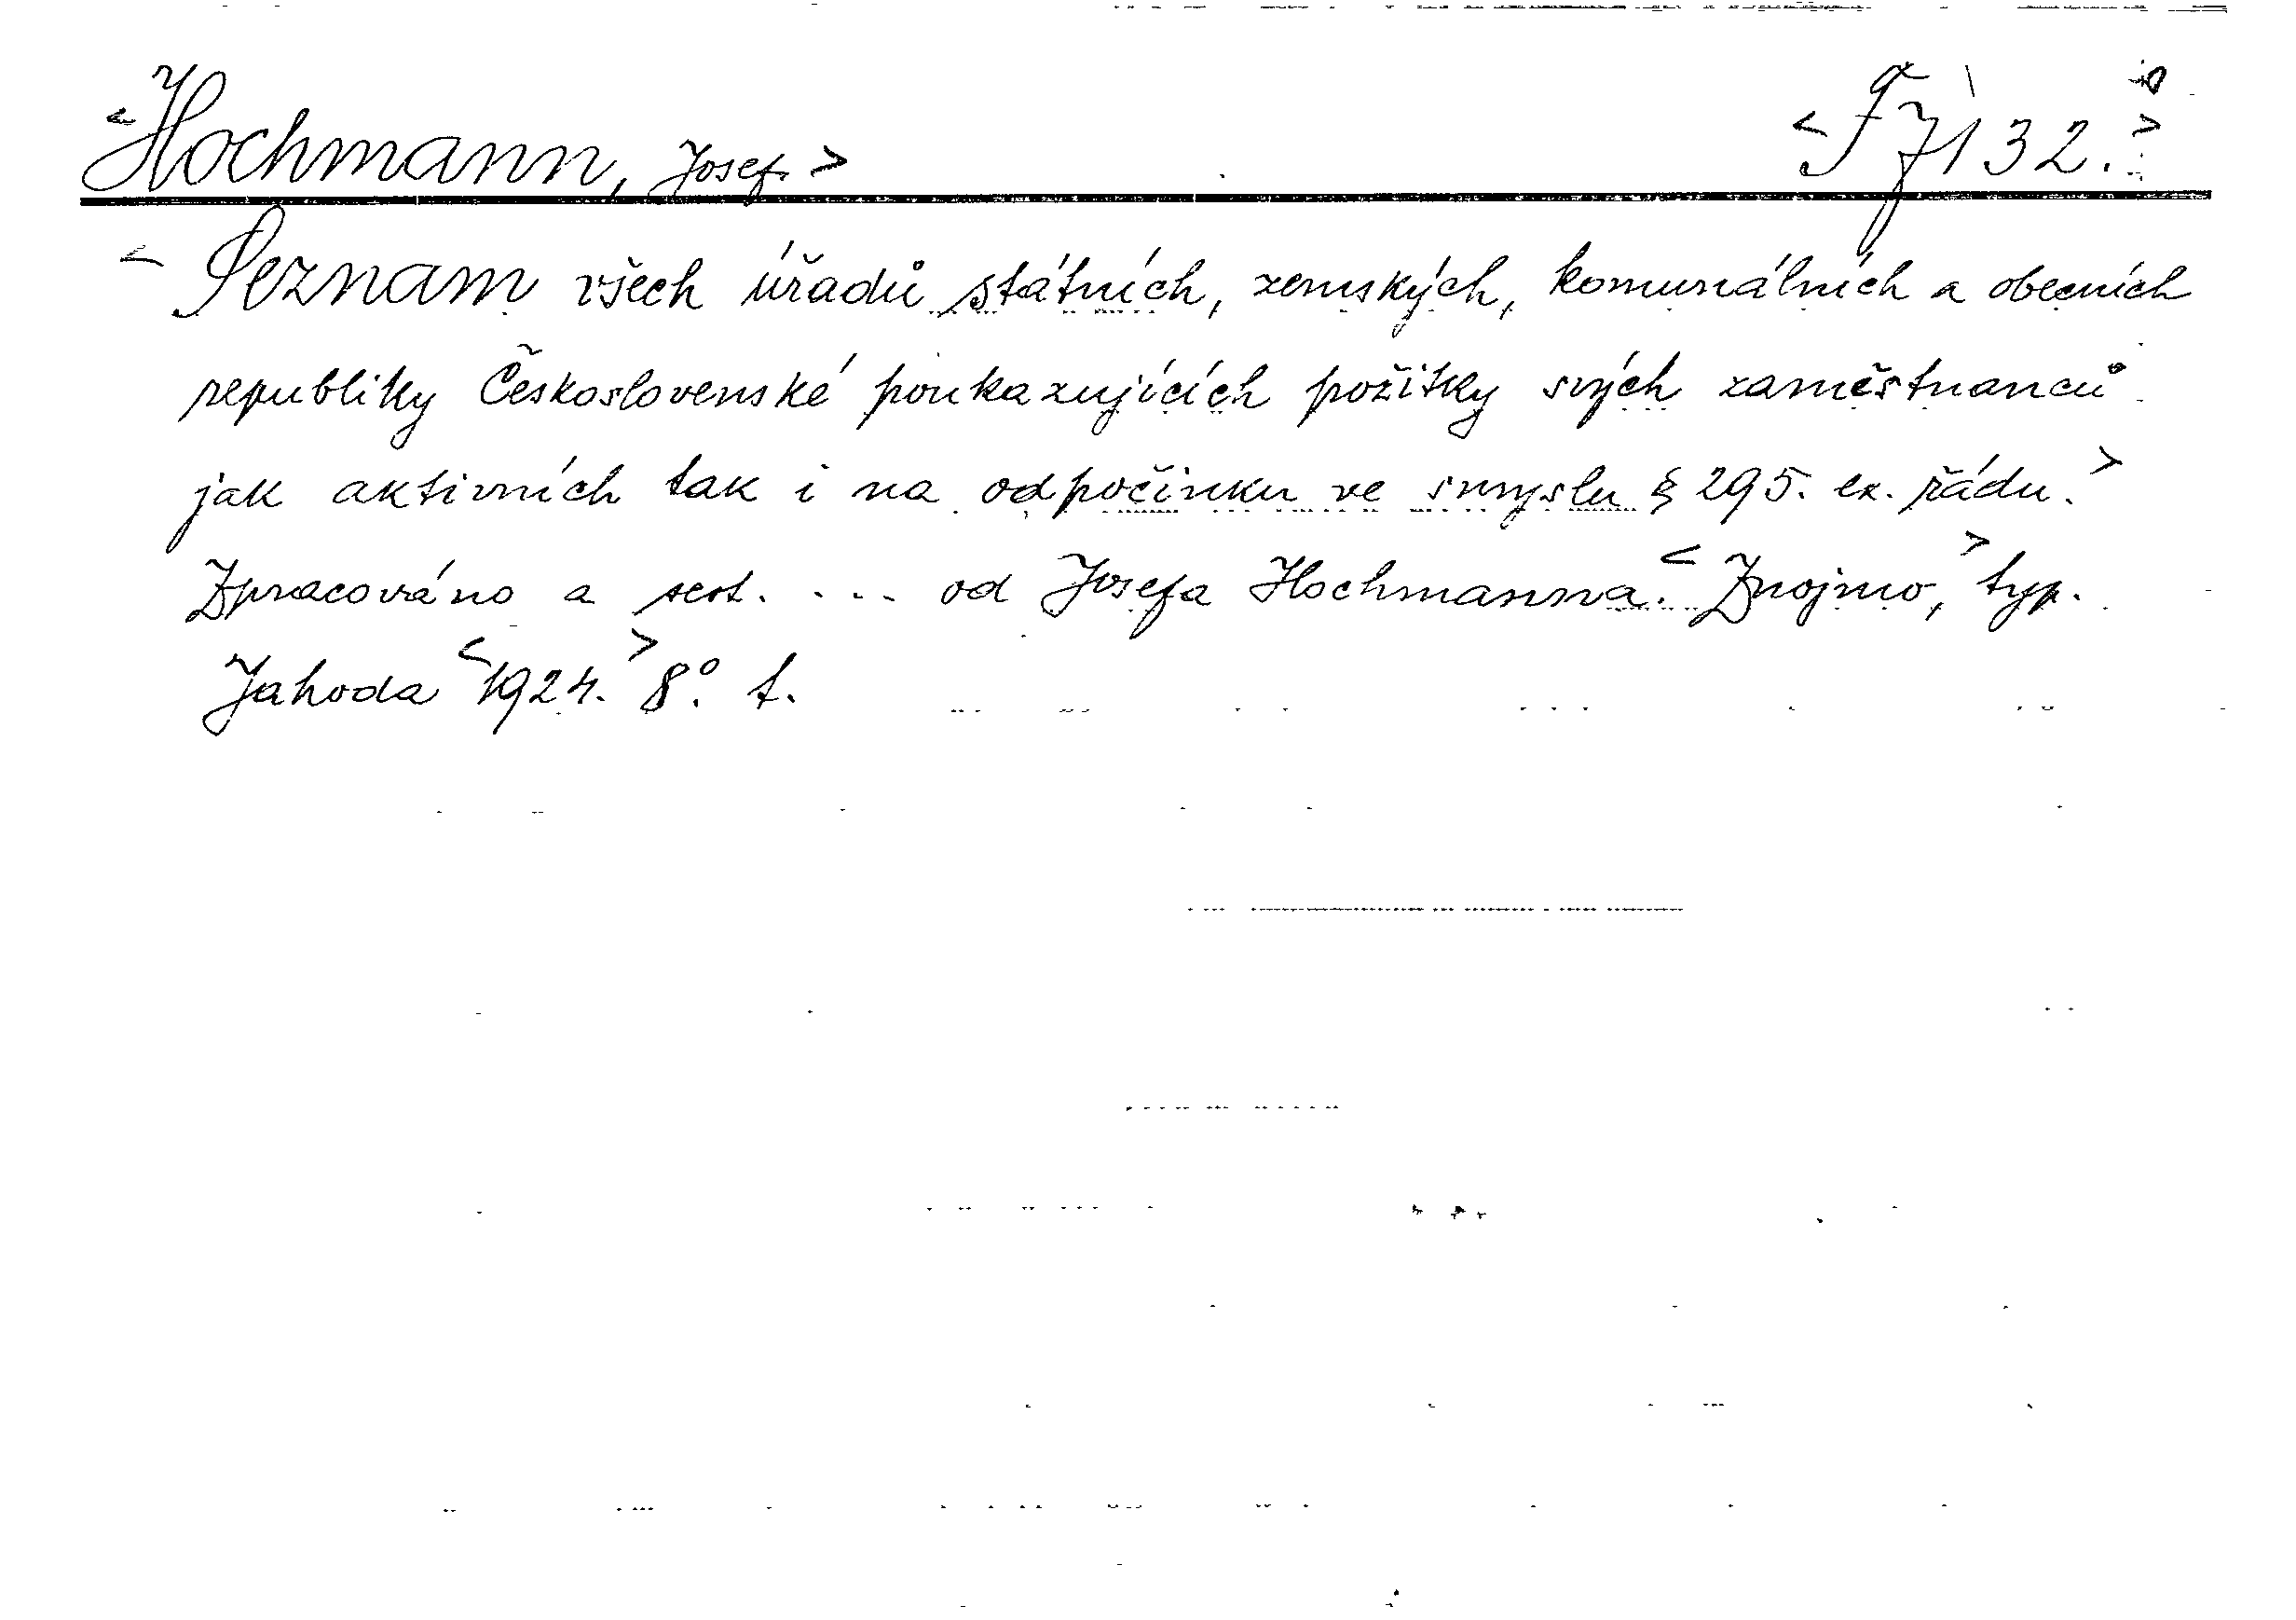 <Hochmann, Josef.> <F 7132.>
<Seznam všech úřadů státních, zemských, komunálních a obecních
republiky Československé poukazujících požitky svých zaměstnanců
jak aktivních tak i na odpočinku ve smyslu § 295. ex. řádu.>
Zpracováno a sest. ... od Josefa Hochmanna. <Znojmo,> typ.
Jahoda <1924.> 8°. t.